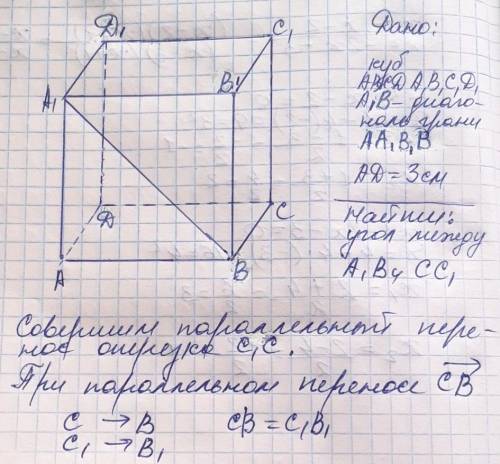 Дано:
куб
ABCDA₁B₁C₁D₁
A₁B – диаго-
наль грани
AA₁B₁B
AD = 3 см
Найти:
угол между
A₁B и CC₁
D₁
C₁
A₁
B₁
D
C
A
B
Совершим параллельный пере-
нос отрезка C₁C.
При параллельном переносе CB
C → B CB = C₁B₁
C₁ → B₁